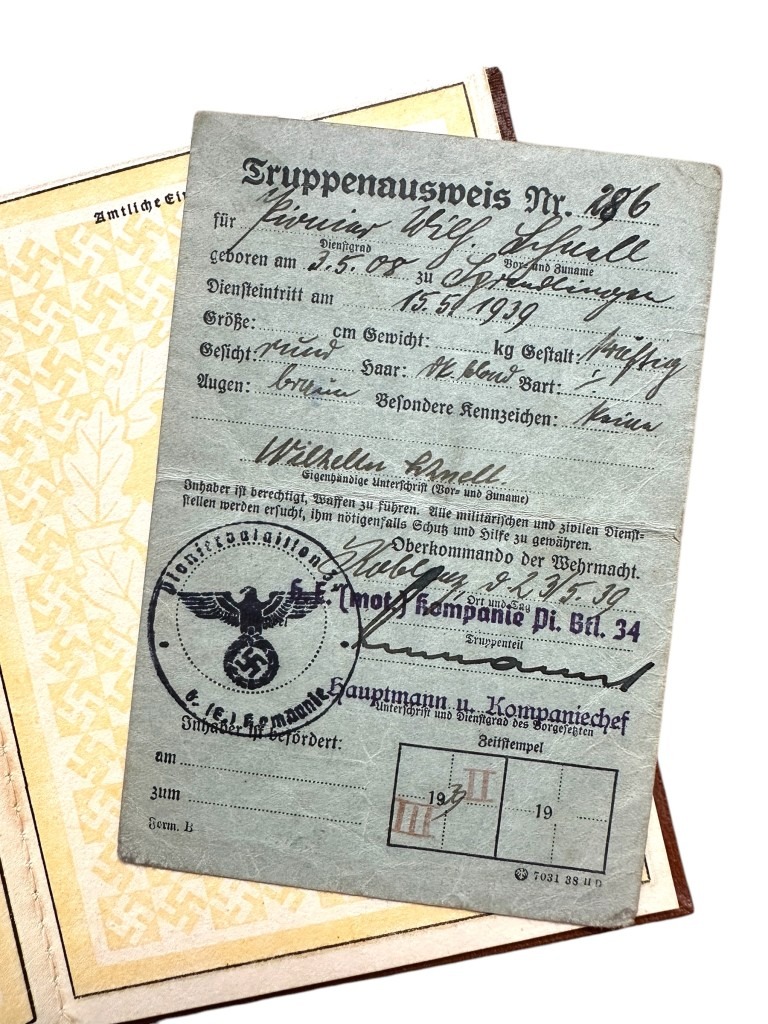 Amtliche Ei
Truppenausweis Nr. 286
für Pionier Wilh. Schnell
Dienstgrad Vor- und Zuname
geboren am 3.5.08 zu Sprendlingen
Diensteintritt am 15.5.1939
Größe: cm Gewicht: kg Gestalt: kräftig
Gesicht: rund Haar: dk.blond Bart: /
Augen: braun Besondere Kennzeichen: keine
Wilhelm Schnell
Eigenhändige Unterschrift (Vor- und Zuname)
Inhaber ist berechtigt, Waffen zu führen. Alle militärischen und zivilen Dienst-
stellen werden ersucht, ihm nötigenfalls Schutz und Hilfe zu gewähren.
Oberkommando der Wehrmacht.
Koblenz, d. 23/5. 39
Ort und Tag
6. E. (mot.) Kompanie Pi. Btl. 34
Truppenteil
Hauptmann u. Kompaniechef
Unterschrift und Dienstgrad des Vorgesetzten
Pionierbataillon 34
6. (E.) Kompanie
Inhaber ist befördert:
Zeitstempel
am
zum
II
193 19
III
Form. B
7031 38 II D